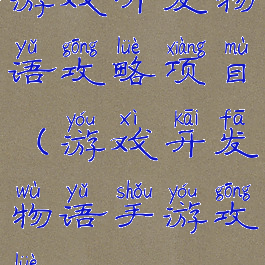 游戏开发物
yǔ gōng luè xiàng mù
语攻略项目
yóu xì kāi fā
（游戏开发
wù yǔ shǒu yóu gōng
物语手游攻
luè